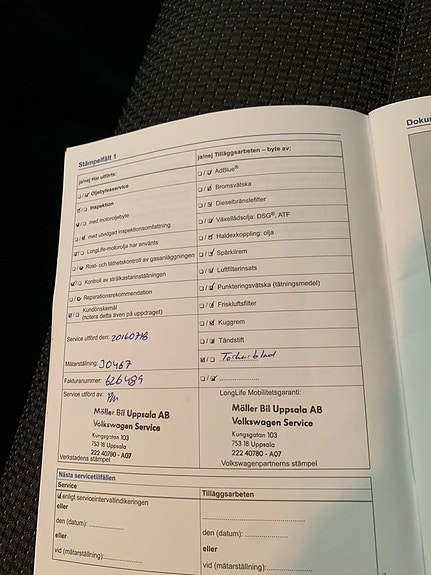 Stämpelfält 1
ja/nej Har utförts:
Oljebytesservice
Inspektion
med motoroljebyte
med utvidgad inspektionsomfattning
LongLife-motorolja har använts
Rost- och täthetskontroll av gasanläggningen
Kontroll av strålkastarinställningen
Reparationsrekommendation
Kundönskemål
(notera detta även på uppdraget)
Service utförd den:
Mätarställning: 30467
Fakturanummer: 626489
Service utförd av:
Möller Bil Uppsala AB
Volkswagen Service
Kungsgatan 103
753 18 Uppsala
222 40780 - A07
Verkstadens stämpel
ja/nej Tilläggsarbeten – byte av:
AdBlue®
Bromsvätska
Dieselbränslefilter
Växellådsolja: DSG®, ATF
Haldexkoppling: olja
Spårkilrem
Luftfilterinsats
Punkteringsvätska (tätningsmedel)
Friskluftsfilter
Kuggrem
Tändstift
Torkarblad
....................
LongLife Mobilitetsgaranti:
Möller Bil Uppsala AB
Volkswagen Service
Kungsgatan 103
753 18 Uppsala
222 40780 - A07
Volkswagenpartnerns stämpel
Nästa servicetillfällen
Service
enligt serviceintervallindikeringen
eller
den (datum):....................
eller
vid (mätarställning):....................
Tilläggsarbeten
..............................
eller
den (datum):....................
eller
vid (mätarställning):....................
Dokum